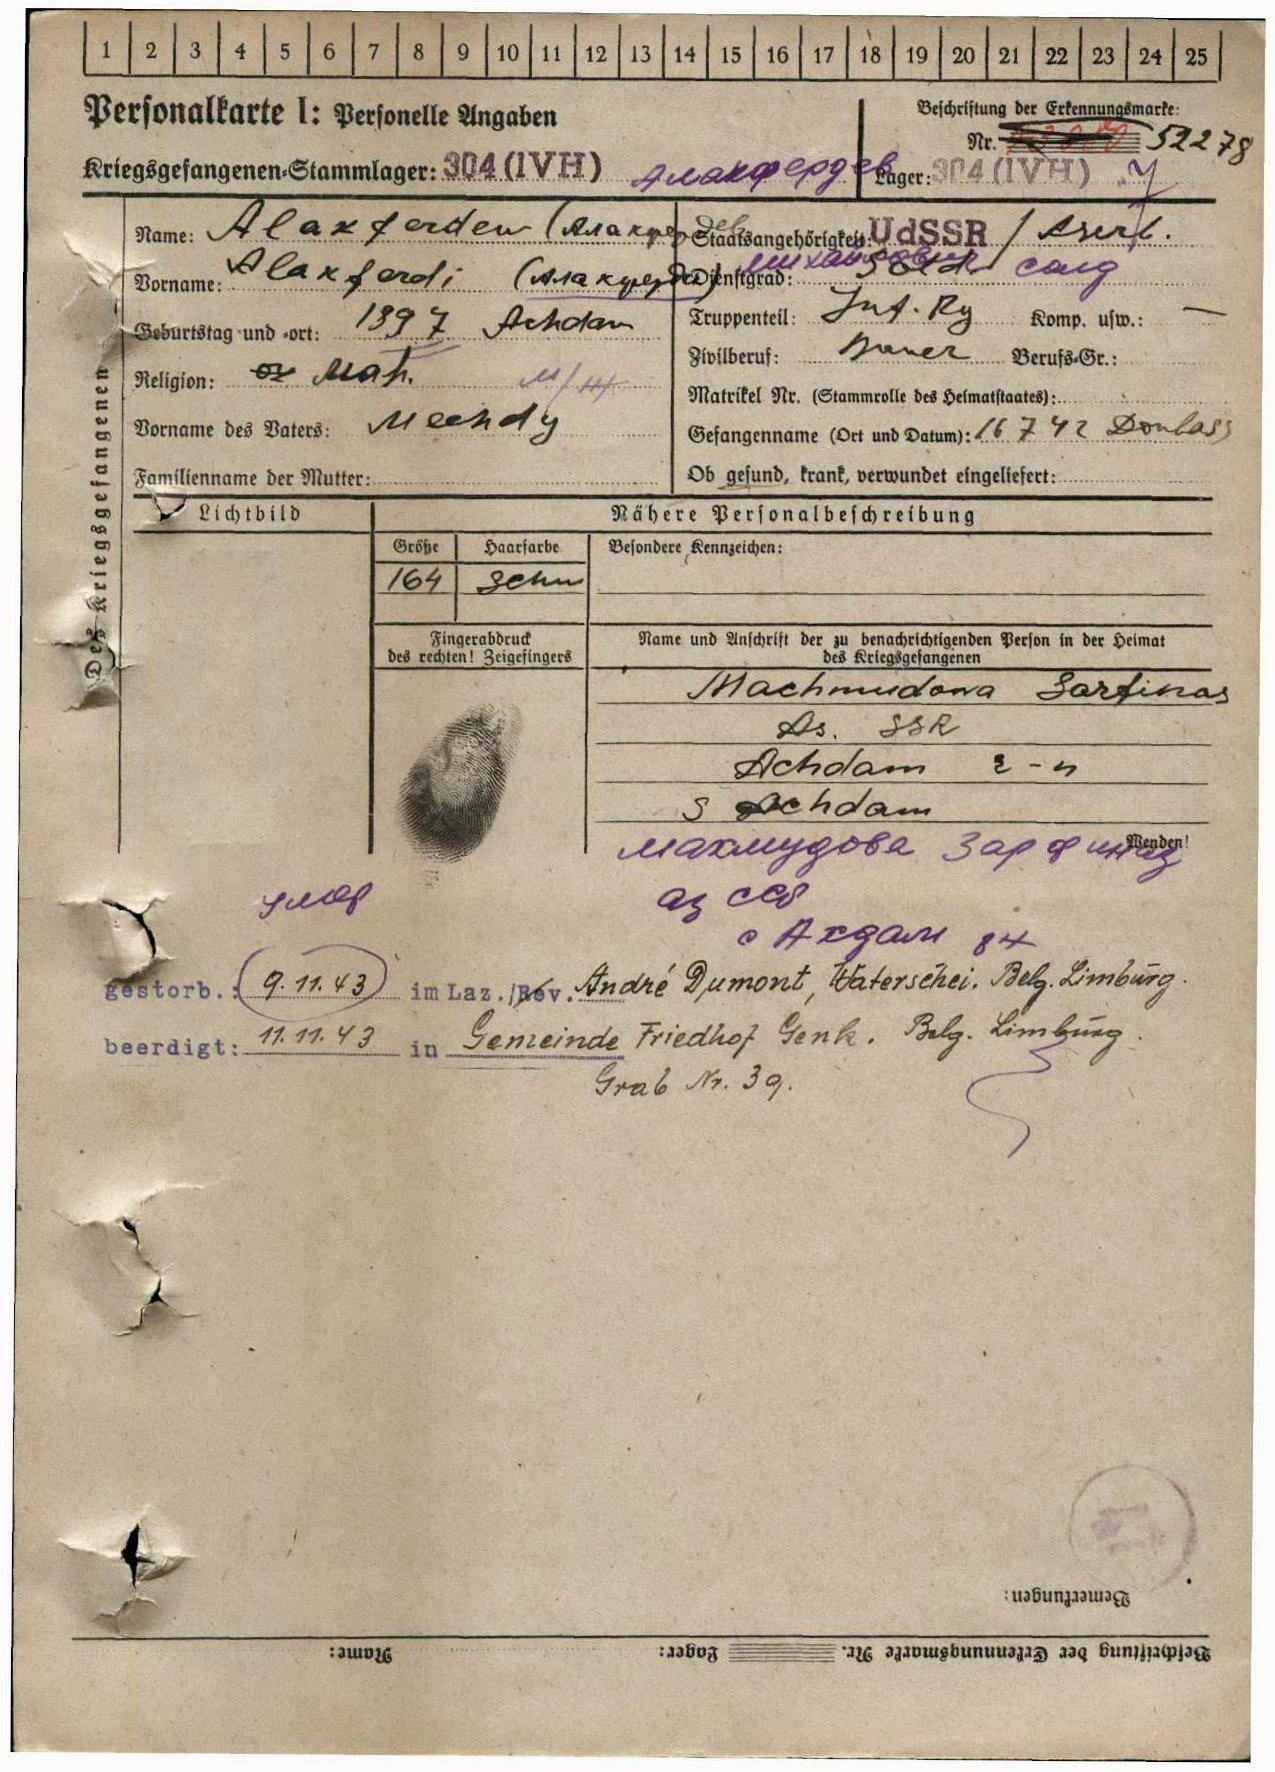 1 2 3 4 5 6 7 8 9 10 11 12 13 14 15 16 17 18 19 20 21 22 23 24 25
Personalkarte I: Personelle Angaben
Beschriftung der Erkennungsmarke:
Nr. 52278
Kriegsgefangenen-Stammlager: 304 (IVH) Алакфердев
Lager: 304 (IVH)
Des Kriegsgefangenen
Name: Alaxferdew (Алакфердев
Vorname: Alaxferdi (Алакуферди)
Geburtstag und -ort: 1897 Achdam
Religion: Moh. м/н
Vorname des Vaters: Mechdy
Familienname der Mutter:
Staatsangehörigkeit: UdSSR / Aserb.
Михайлович
Dienstgrad: Sold солд
Truppenteil: Inf. Rg Komp. usw.: —
Zivilberuf: Bauer Berufs-Gr.:
Matrikel Nr. (Stammrolle des Heimatstaates):
Gefangenname (Ort und Datum): 16 7 42 Donbass
Ob gesund, krank, verwundet eingeliefert:
Lichtbild
Nähere Personalbeschreibung
Größe Haarfarbe Besondere Kennzeichen:
164 schw
Fingerabdruck
des rechten! Zeigefingers
Name und Anschrift der zu benachrichtigenden Person in der Heimat
des Kriegsgefangenen
Machmudowa Sarfinas
As. SSR
Achdam r-n
S Achdam
Wenden!
Махмудова Зарфиназ
умер
аз ССР
с Ахдам
gestorb.: 9.11.43 im Laz./Rev. André Dumont, Waterschei. Belg. Limburg.
beerdigt: 11.11.43 in Gemeinde Friedhof Genk. Belg. Limburg.
Grab Nr. 39.
Bemerkungen:
Beschriftung der Erkennungsmarke Nr. Lager: Name: